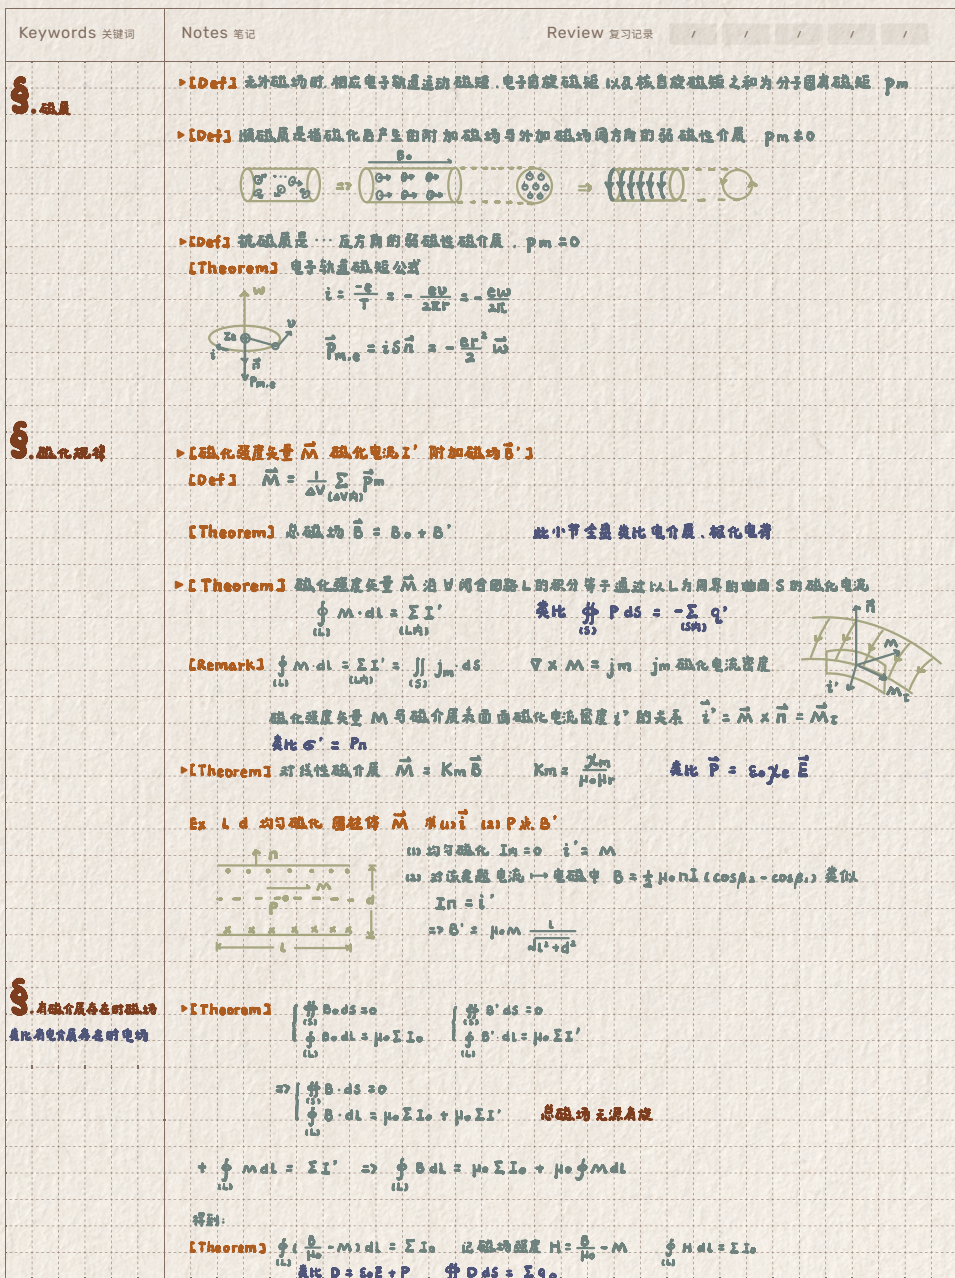 Keywords 关键词
Notes 笔记
Review 复习记录 / / / / /
§.磁质
▸[Def] 无外磁场时,相应电子轨道运动磁矩,电子自旋磁矩以及核自旋磁矩之和为分子固有磁矩 pm
▸[Def] 顺磁质是指磁化后产生的附加磁场与外加磁场同方向的弱磁性介质 pm≠0
B₀
=> =>
▸[Def] 抗磁质是…反方向的弱磁性磁介质, pm=0
[Theorem] 电子轨道磁矩公式
i = -e/T = - ev/2πr = - eω/2π
w v I₀ i n⃗ Pm,e
p⃗m,e = iSn⃗ = - er²/2 w⃗
§.磁化规律
▸[磁化强度矢量 M⃗ 磁化电流I' 附加磁场B⃗']
[Def] M⃗ = 1/ΔV Σ(ΔV内) p⃗m
[Theorem] 总磁场 B⃗ = B₀ + B'
此小节全盘类比电介质、极化电荷
▸[Theorem] 磁化强度矢量 M⃗ 沿∀闭合回路L的积分等于通过以L为周界的曲面S的磁化电流
∮(L) M·dL = Σ(L内) I'
类比 ∯(S) P dS = -Σ(S内) q'
[Remark] ∮(L) M·dL = Σ(L内) I' = ∬(S) jm·dS
∇ × M = jm jm 磁化电流密度
n⃗ M Mτ i'
磁化强度矢量 M 与磁介质表面面磁化电流密度 i' 的关系 i⃗' = M⃗ × n⃗ = M⃗τ
类比 σ' = Pn
▸[Theorem] 对线性磁介质 M⃗ = Km B⃗ Km = χm/μ₀μr 类比 P⃗ = ε₀χe E⃗
Ex L d 均匀磁化 圆柱体 M⃗ 求(1)i⃗ (2) P点B'
(1) 均匀磁化 I内=0 i' = M
n M P d L
(2) 对该类题 电流 ↦ 电磁中 B = ½μ₀nI (cosβ₂ - cosβ₁) 类似
In = i'
=> B' = μ₀M L/√(L²+d²)
§.有磁介质存在时磁场
类比有电介质存在时电场
▸[Theorem] { ∯(S) B₀dS=0 { ∯(S) B'dS =0
∮(L) B₀dL = μ₀ΣI₀ ∮(L) B'·dL = μ₀ΣI'
=> { ∯(S) B·dS =0
∮(L) B·dL = μ₀ΣI₀ + μ₀ΣI' 总磁场无源有旋
+ ∮(L) MdL = ΣI' => ∮(L) BdL = μ₀ΣI₀ + μ₀∮MdL
得到:
[Theorem] ∮(L) (B/μ₀ - M)dL = ΣI₀ 记磁场强度 H = B/μ₀ - M ∮(L) HdL = ΣI₀
类比 D = ε₀E + P ∯ DdS = Σq₀